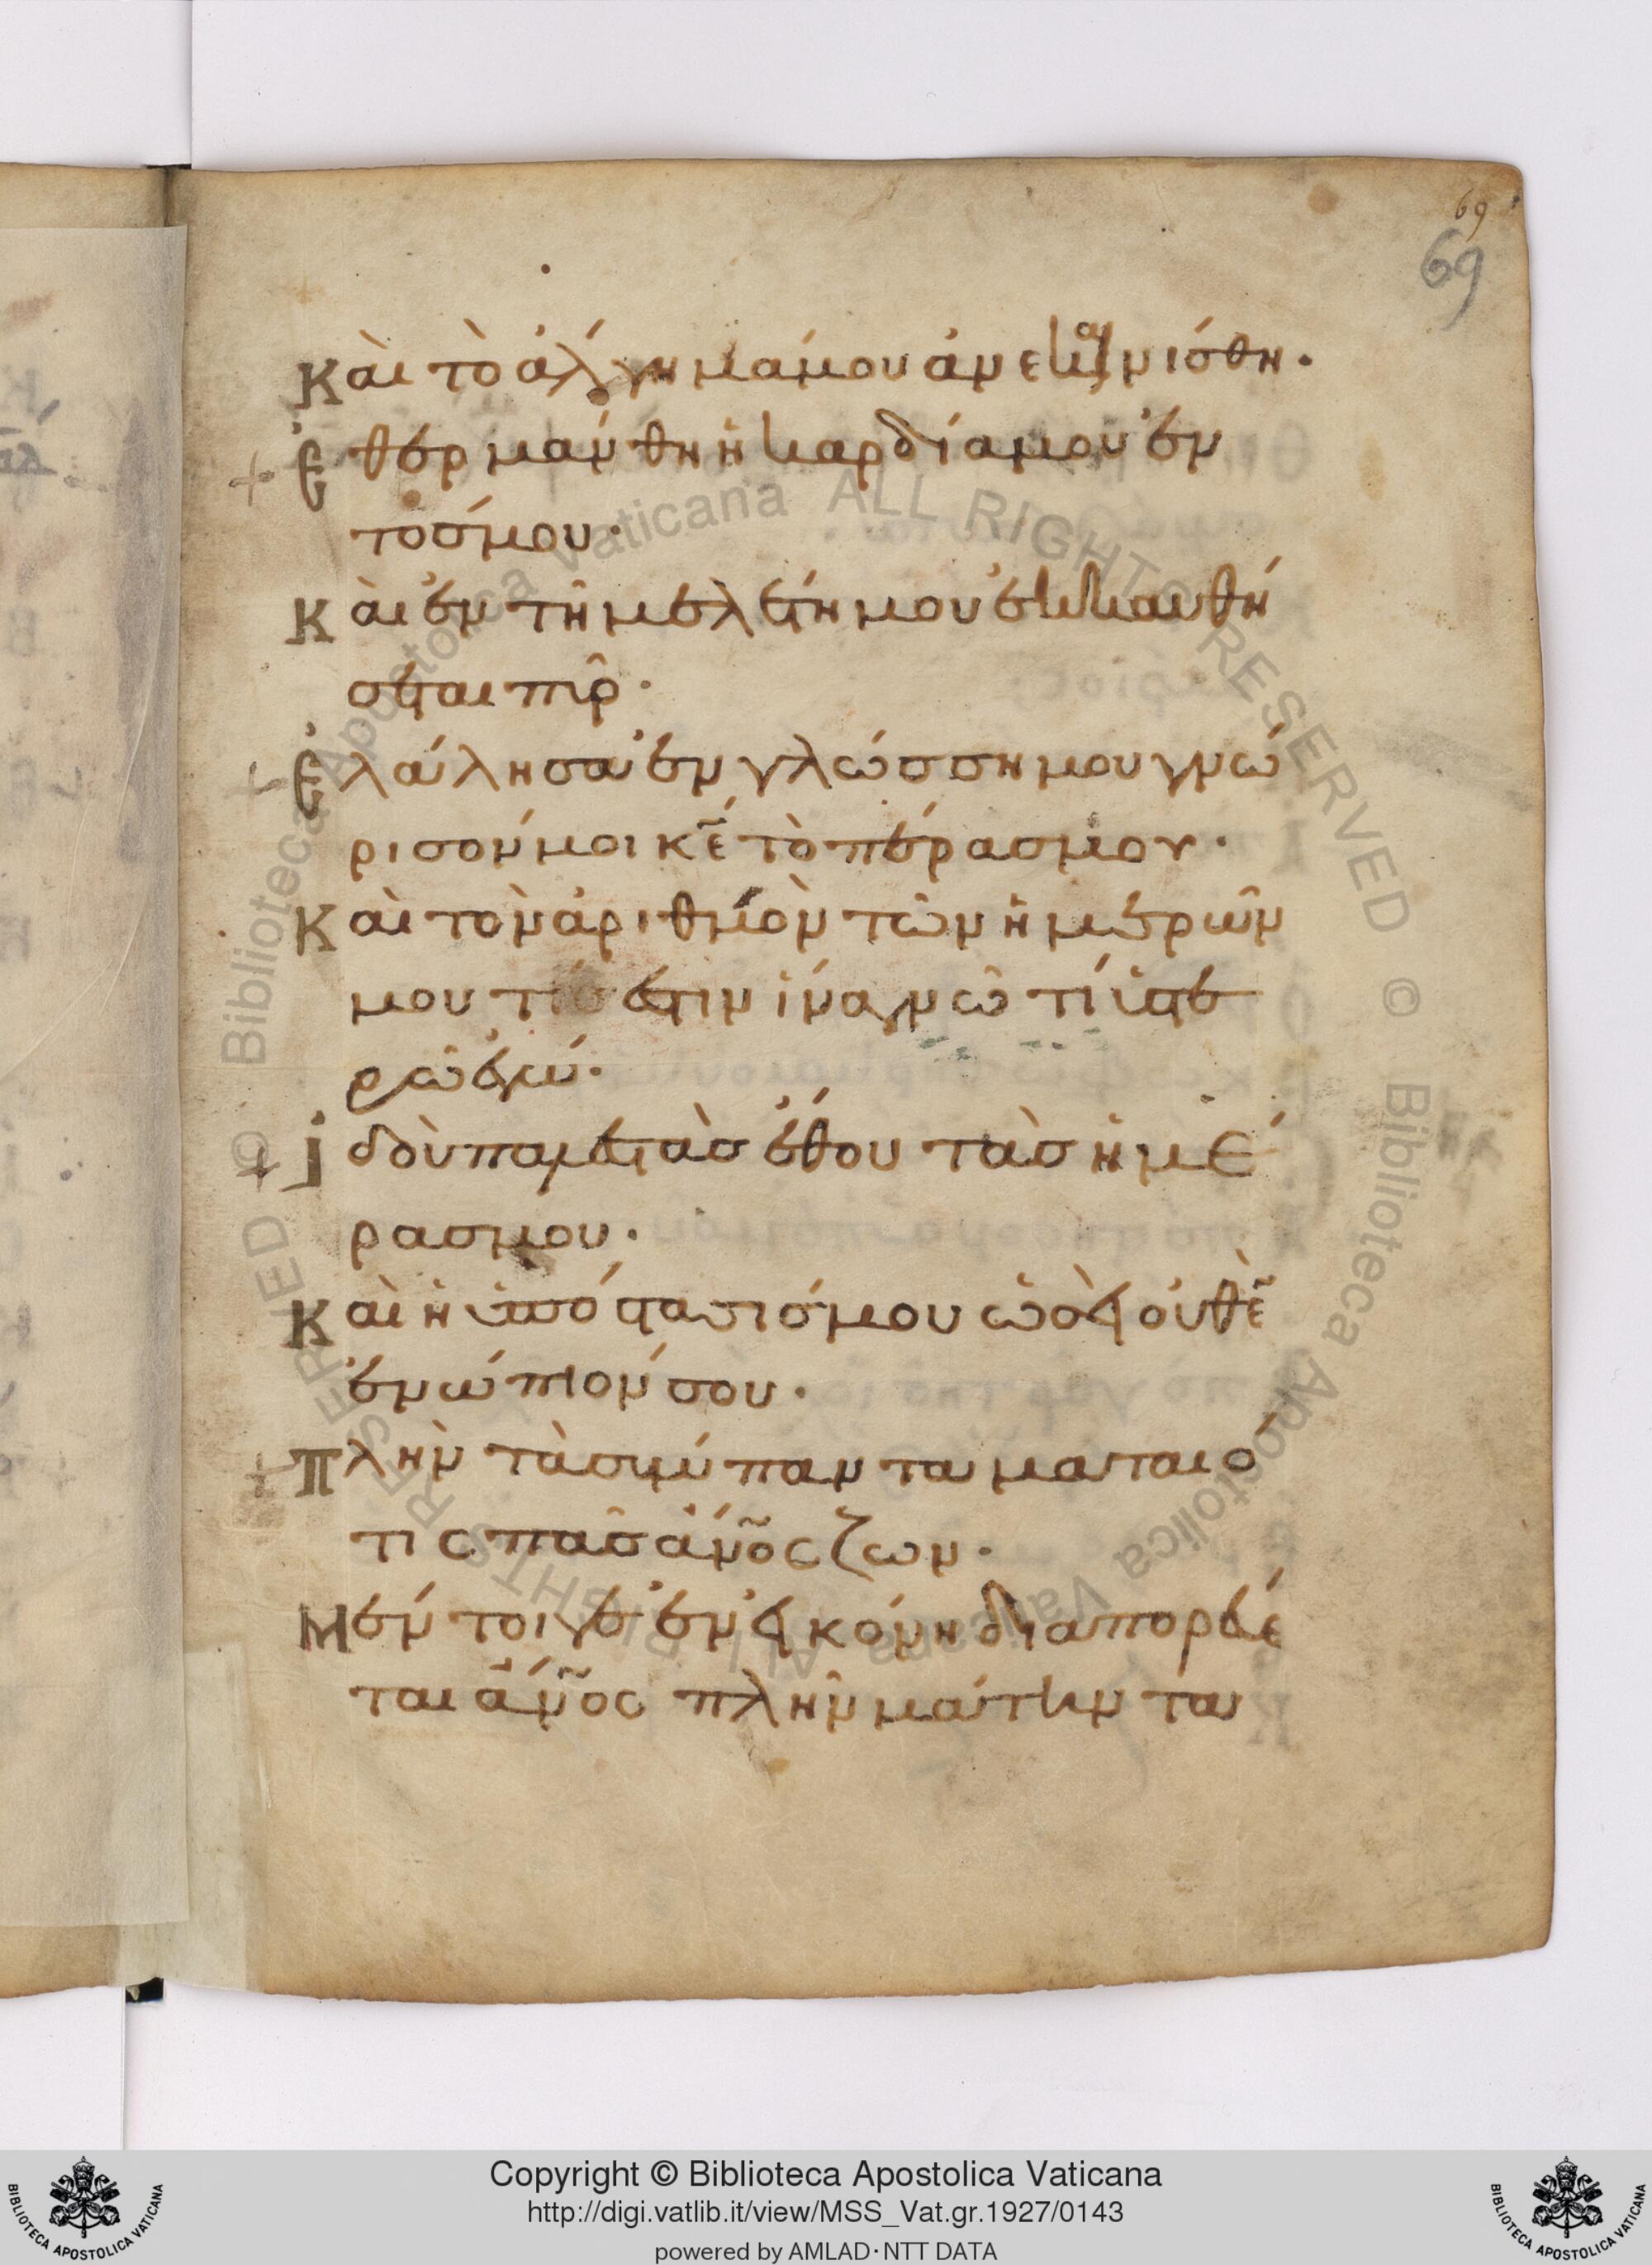 69
69
Καὶ τὸ ἄλγημά μου ἀνεκαινίσθη·
Ἐθερμάνθη ἡ καρδία μου ἐν
τός μου·
Καὶ ἐν τῆ μελέτη μου ἐκκαυθή
σεται πῦρ·
Ἐλάλησα ἐν γλώσση μου γνώ
ρισόν μοι κ̅ε̅ τὸ πέρας μου·
Καὶ τὸν ἀριθμὸν τῶν ἡμερῶν
μου τίς ἐστιν ἵνα γνῶ τί ὑστε
ρῶ ἐγώ·
Ἰδοὺ παλαιστὰς ἔθου τὰς ἡμέ
ρας μου·
Καὶ ἡ ὑπόστασίς μου ὡσεὶ οὐθὲ̅
ἐνώπιόν σου·
Πλὴν τὰ σύμπαντα ματαιό
τις πᾶς ἄν̅ο̅ς ζων·
Μέντοιγε ἐν εἰκόνη διαπορεύε
ται ἄν̅ο̅ς πλὴν μάτην τα
Copyright © Biblioteca Apostolica Vaticana
http://digi.vatlib.it/view/MSS_Vat.gr.1927/0143
powered by AMLAD·NTT DATA
BIBLIOTECA APOSTOLICA VATICANA
BIBLIOTECA APOSTOLICA VATICANA
© Biblioteca Apostolica Vaticana ALL RIGHTS RESERVED
© Biblioteca Apostolica Vaticana ALL RIGHTS RESERVED